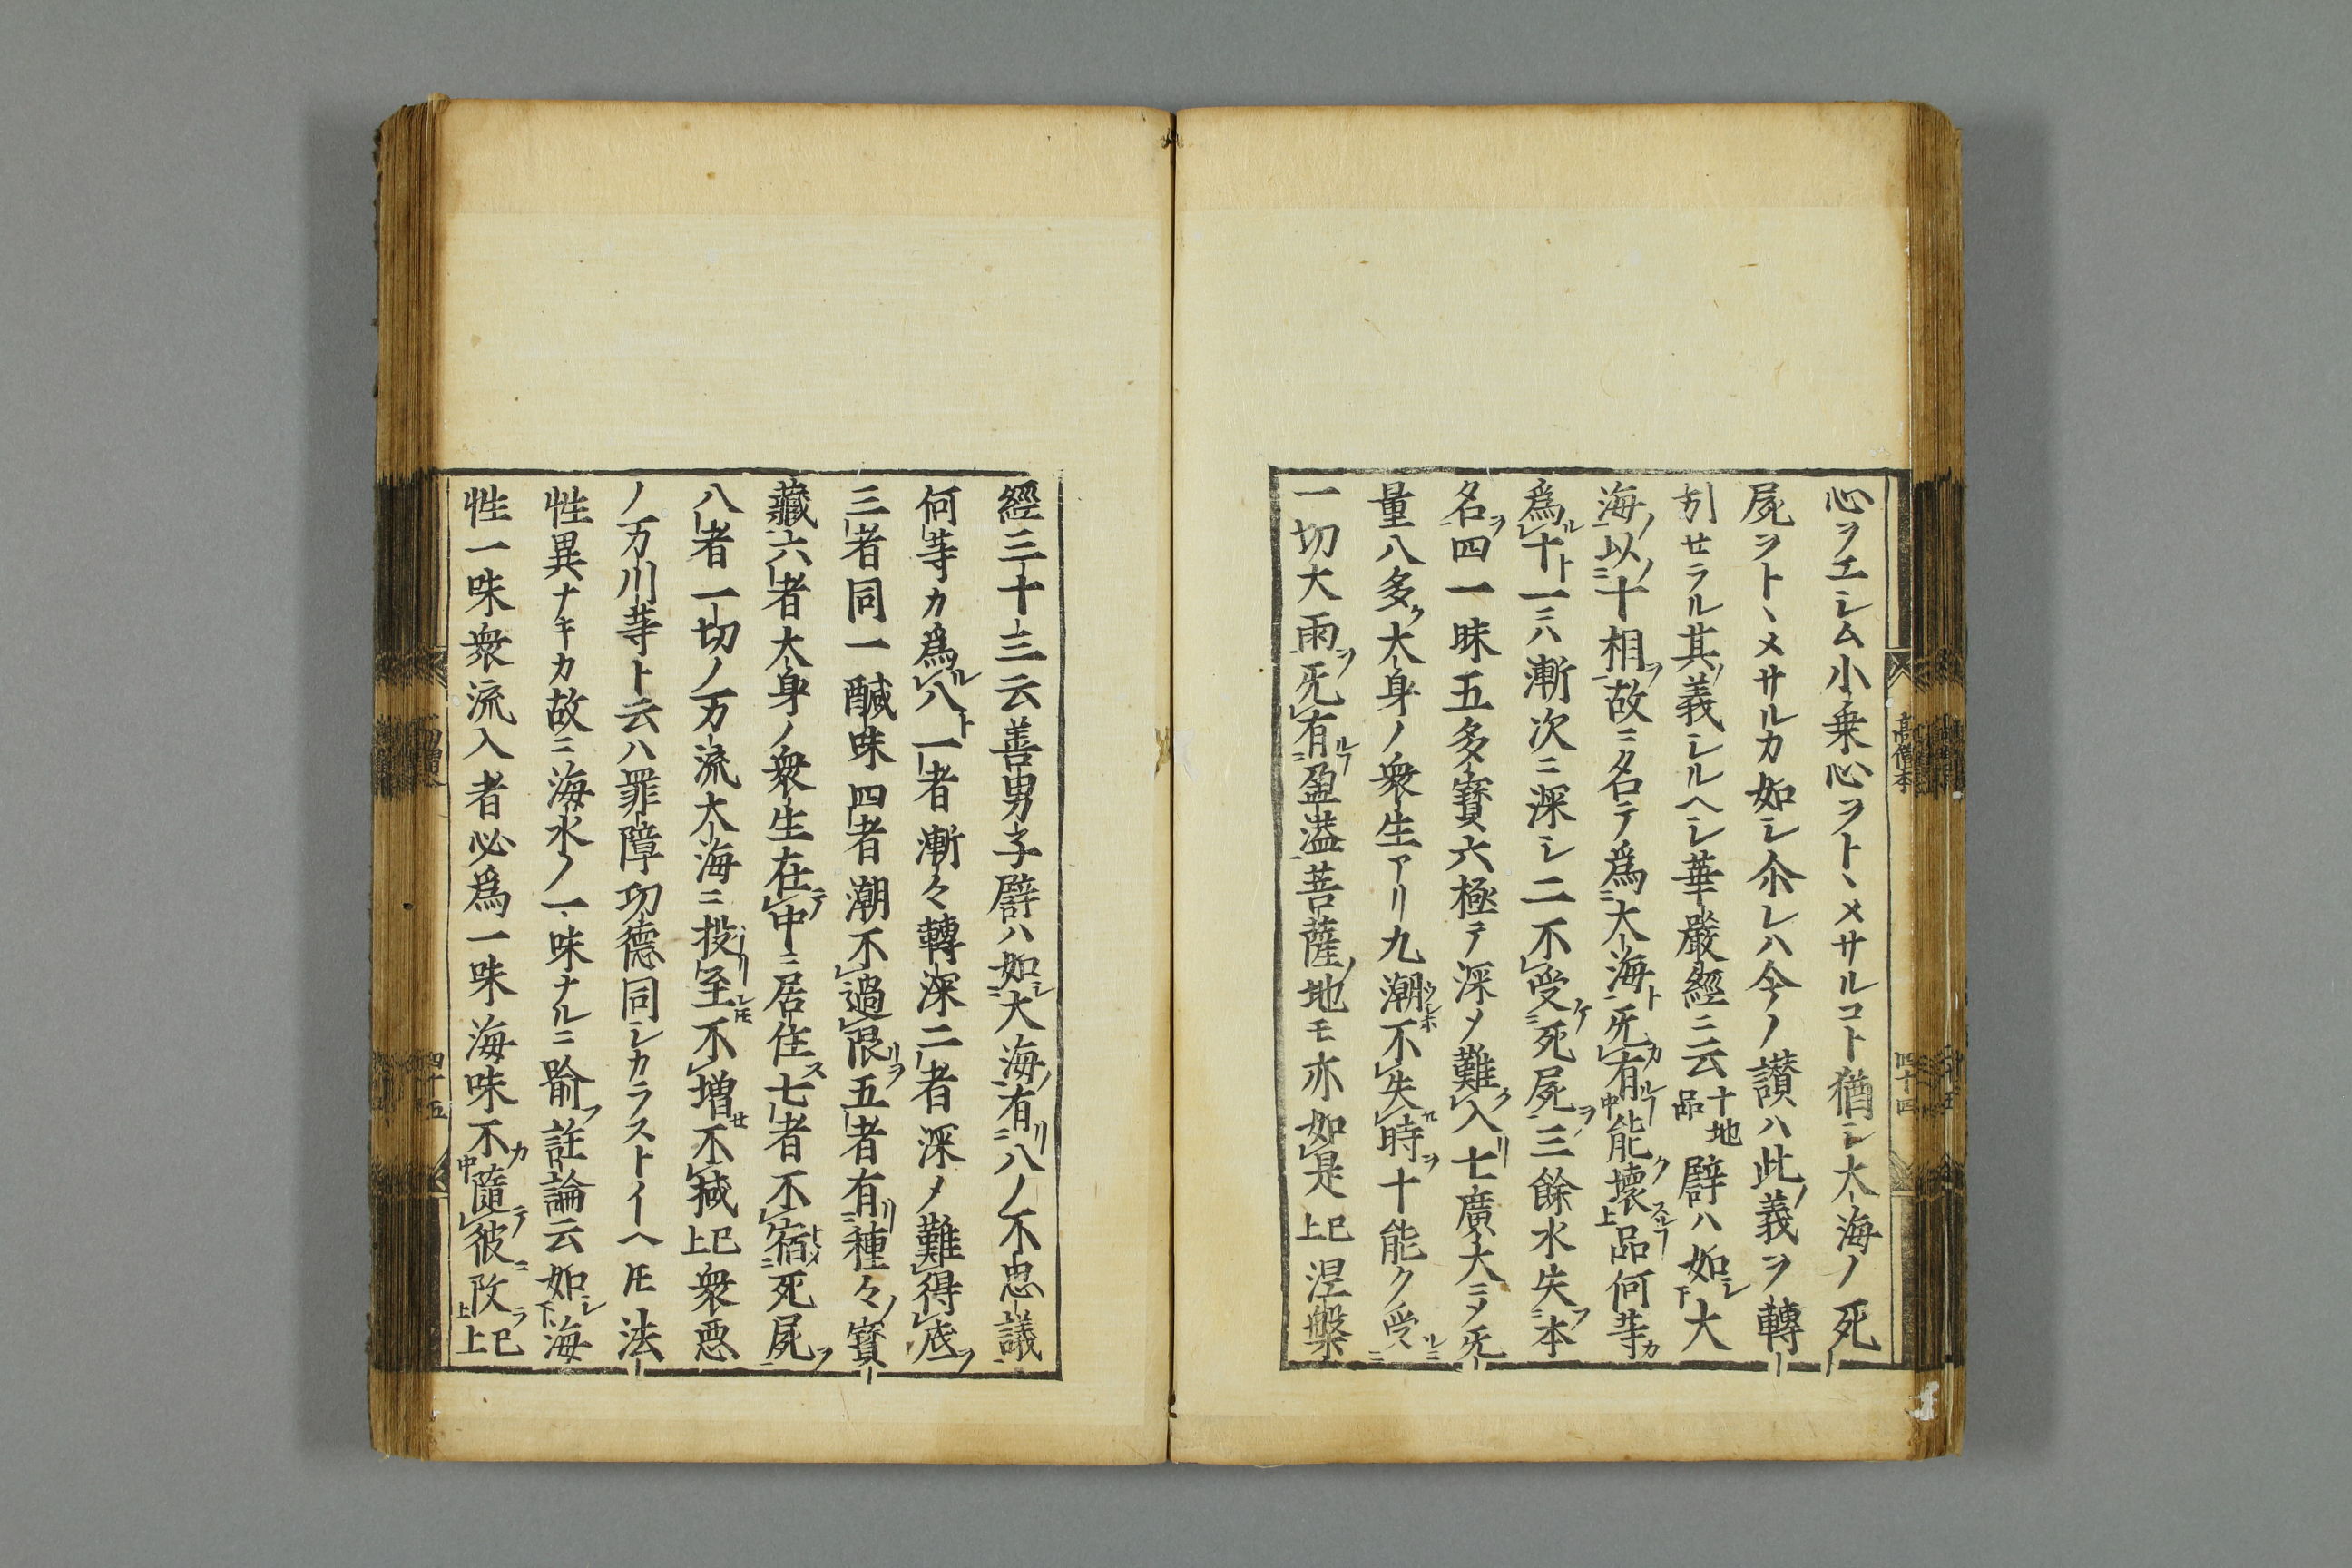 心ヲエシム小乗心ヲトヽメサルコト猶シ大海ノ死
屍ヲトヽメサルカ如シ尒レハ今ノ讃ハ此ノ義ヲ轉
引セラル其ノ義シルヘシ華嚴經ニ云十地品譬ハ如シ大
海ノ以ノ十相ヲ故ニタ名テ爲大海ト无カ有ルヿ能ク壞スルヿ品何等カ
爲ル十ト一ニハ漸次ニ深シ二不受ケ死屍ヲ三餘水失本
名ヲ四一味五多寳六極テ深メ難ク入リ七廣大ニメ无
量八多ク大身ノ衆生アリ九潮ウシホ不失セ時ヲ十能ク受ルニ
一切大雨ヲ无有ルヿ盈溢菩薩ノ地モ亦如是已上涅槃
經三十三云善男子譬ハ如シ大海ノ有リ八ノ不思議
何等カ爲ル八ト一者漸々轉深二者深メ難得底ヲ
三者同一醎味四者潮不過限リヲ五者有リ種々ノ寳
藏六者大身ノ衆生在テ中ニ居住ス七者不宿トメ死屍ヲ
八者一切ノ万流大海ニ投至レ𪜈不増セ不减已上衆悪
ノ万川等ト云ハ罪障功德同シカラストイヘ𪜈法
性異ナキカ故ニ海水ノ一味ナルニ喩フ註論云如シ海
性一味衆流入者必爲一味海味不カ隨テ彼ニ改ラ已上
高僧本
四十四
四十五